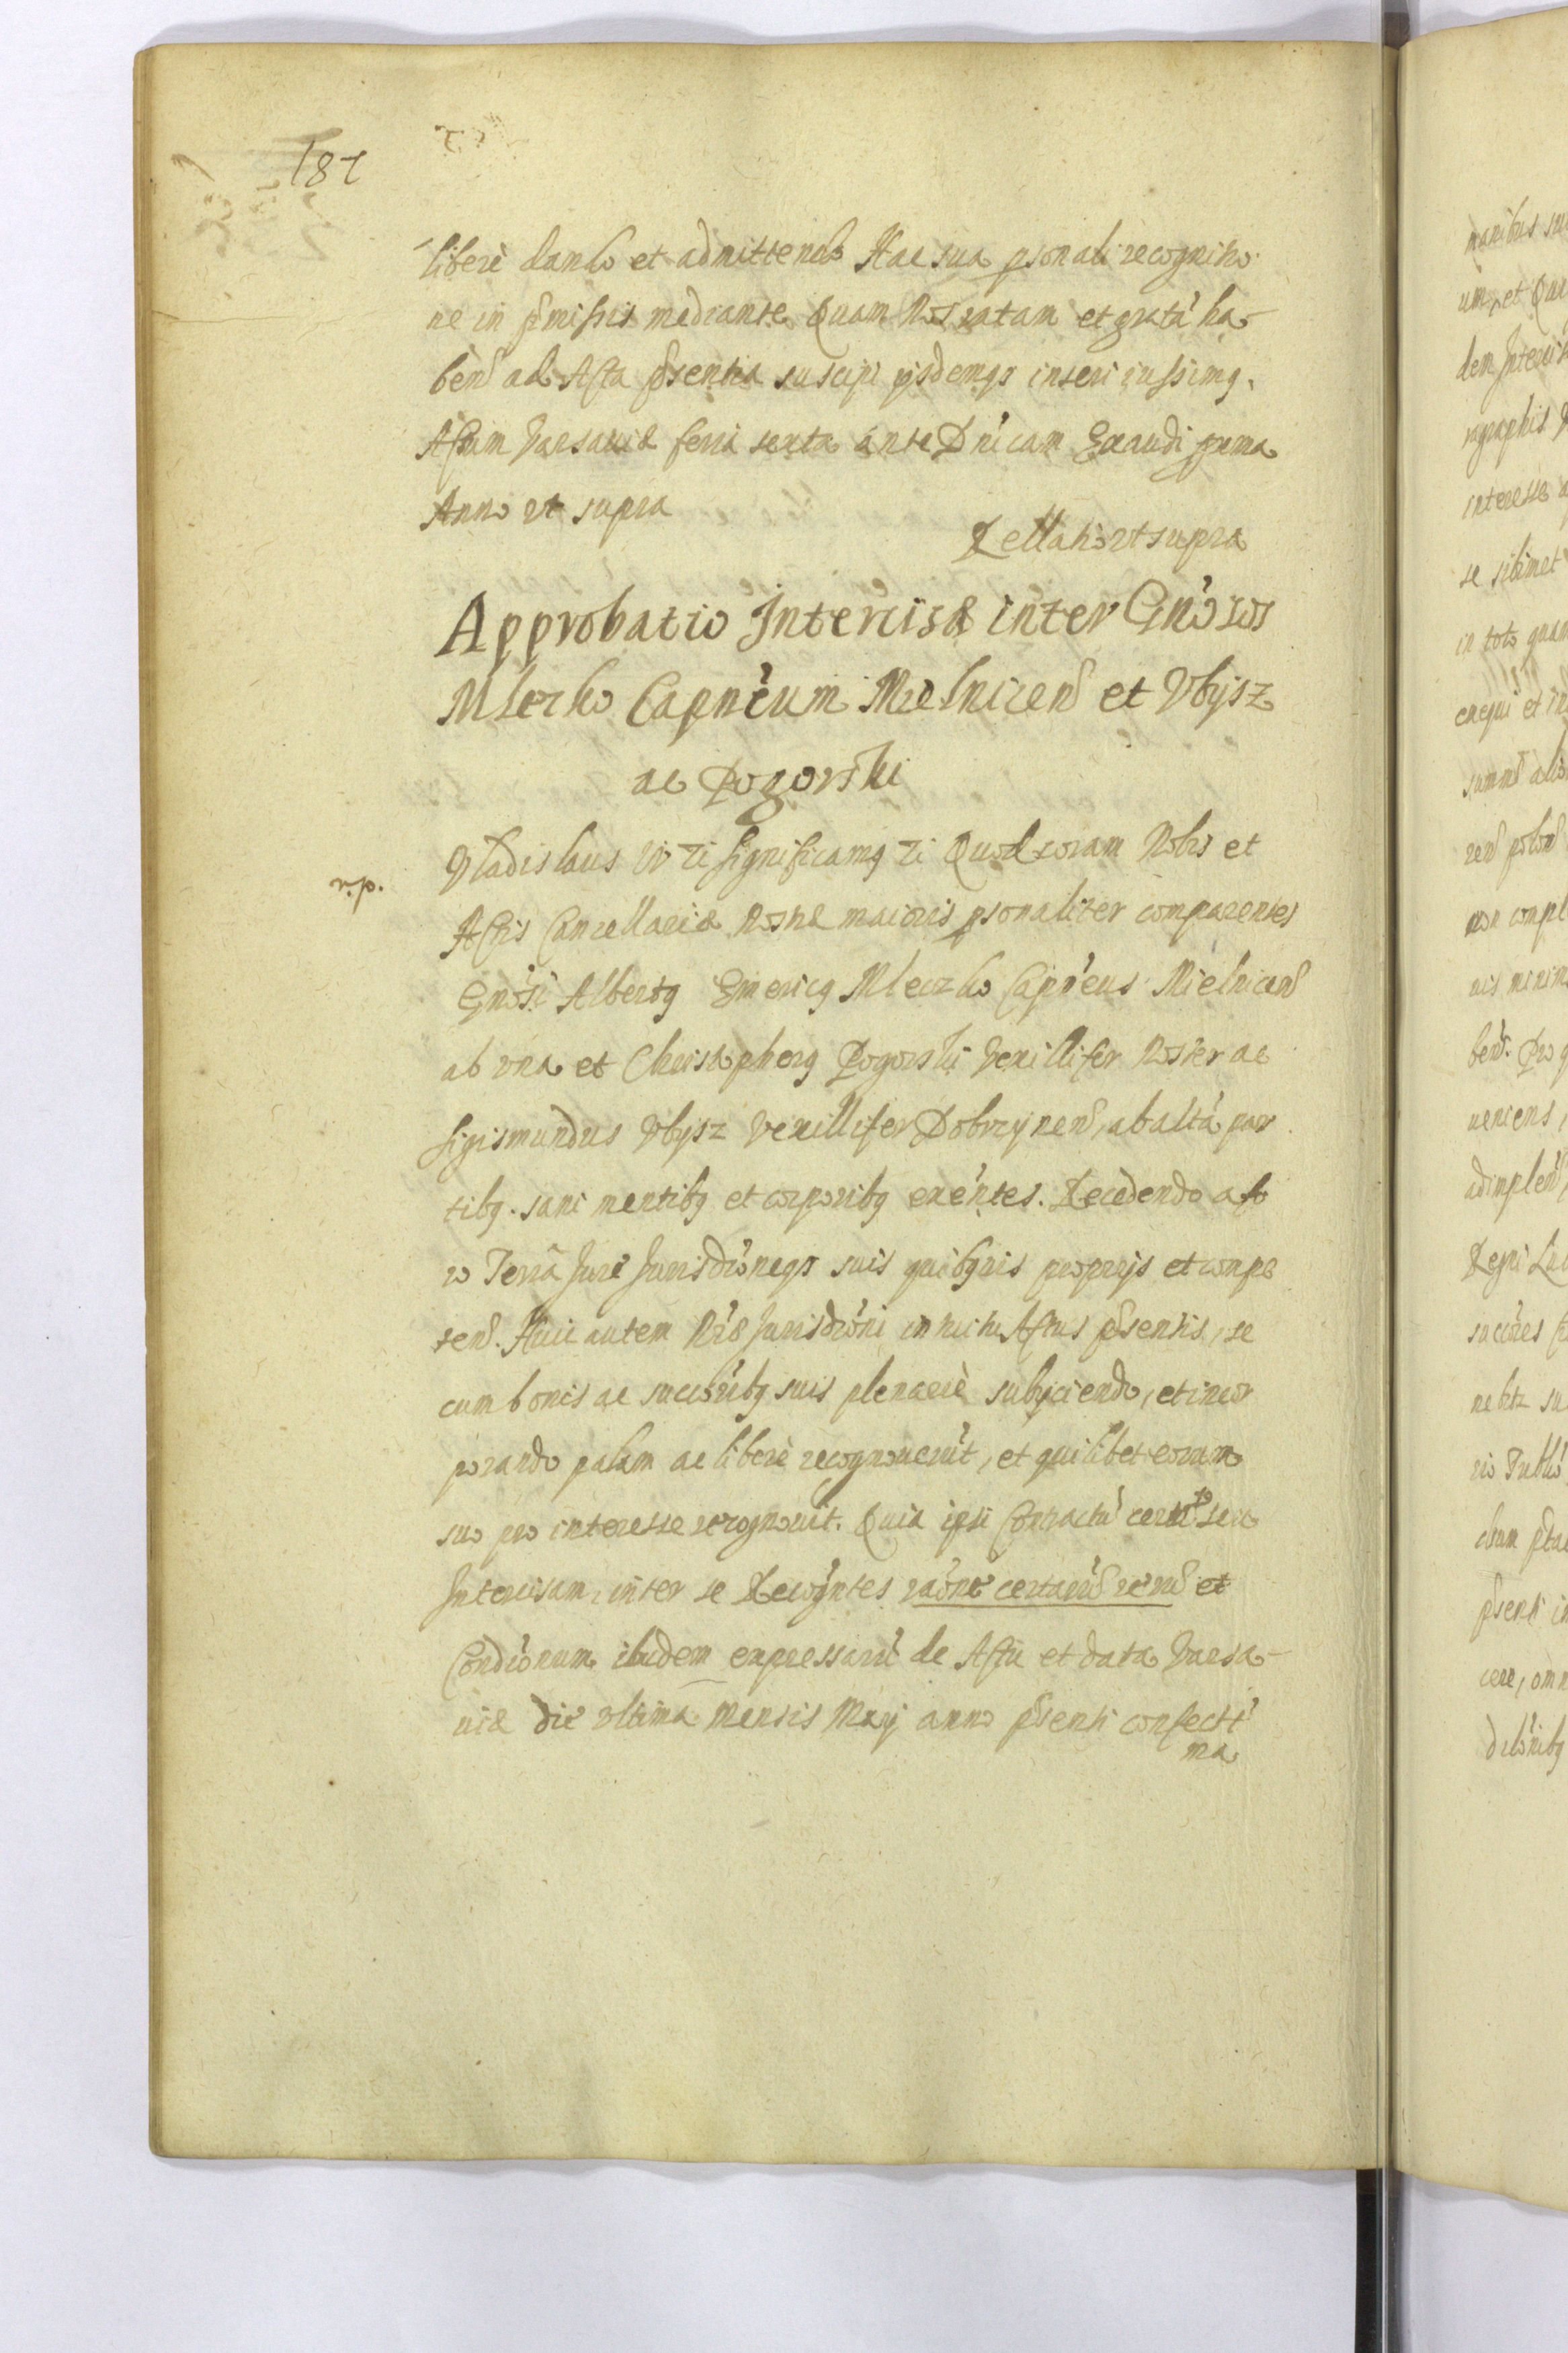 187
liberè dando et admittendo Hac sua psonali recognitio
ne in pmissis mediante Quam Nos ratam et gratã ha-
ben ad Acta psentia suscipi ijsdemq inseri iussimq.
Actum Varsauiæ feria sexta ante Dnicam Exaudi prima
Anno vt supra
Rellatio vt supra
Approbatio Intercisæ inter Gnosos
Mleczko Capneum Melnicen et Vbysz
ac Pogorski
Vladislaus IV Significamq Quod coram Nobis et
r.p.
Actis Cancellariæ Nostræ maioris psonaliter comparentes
Gnosi Albertq Emericq Mleczko Capneus Mielnicen
ab vna et Christophorq Pogorski Vexillifer Noster ac
Sigismundus Vbysz Vexillifer Dobrzynen, ab altã par
tibq. sani mentibq et corporibq exentes. Recedendo a fo
ro Terrã Jure Jurisdioneqs suis quibqvis proprijs et compe
ten. Huic autem Nræ Jurisdioni intuitu Actus psentis, se
cum bonis ac succoribq suis plenariè subijciendo, et incor
porando palam ac liberè recognouerũt, et quilibet eorum
suo pro interesse recognouit. Quia ipsi Contractũ certũ seu
Intercisam, inter se raone certarũ rerũ et
Condionum ibidem expressarũ de Actu et data Varsa-
uiæ die vltima Mensis Maij anno psenti confectã
ma